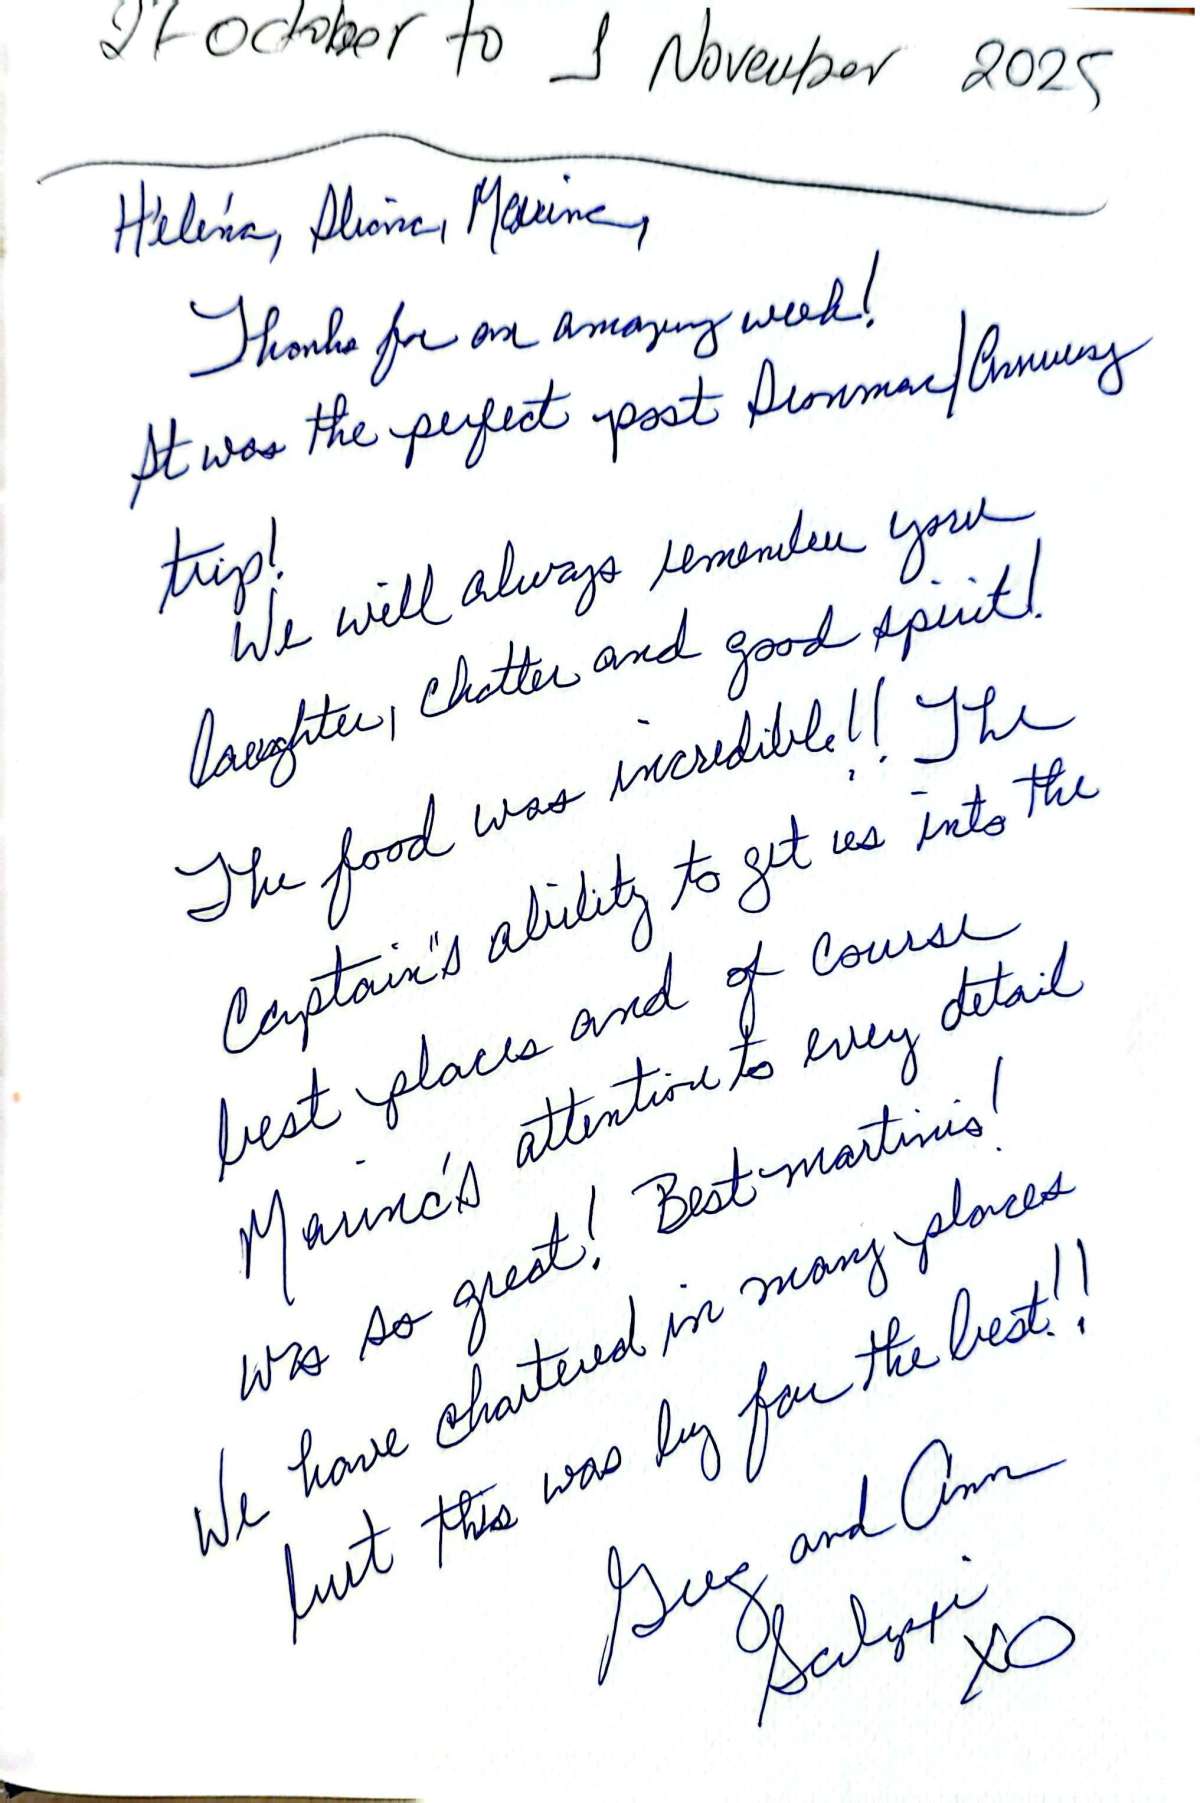 27 October to 1 November 2025
Héléna, Marine,
Thanks for an amazing week!
It was the perfect post
trip!
We will always remember your
laughter, chatter and good spirit!
The food was incredible!! The
Captain"s ability to get us into the
best places and of course
Marine's attention to every detail
was so great! Best martinis!
We have chartered in many places
but this was by far the best!!
Greg and Ann
XO